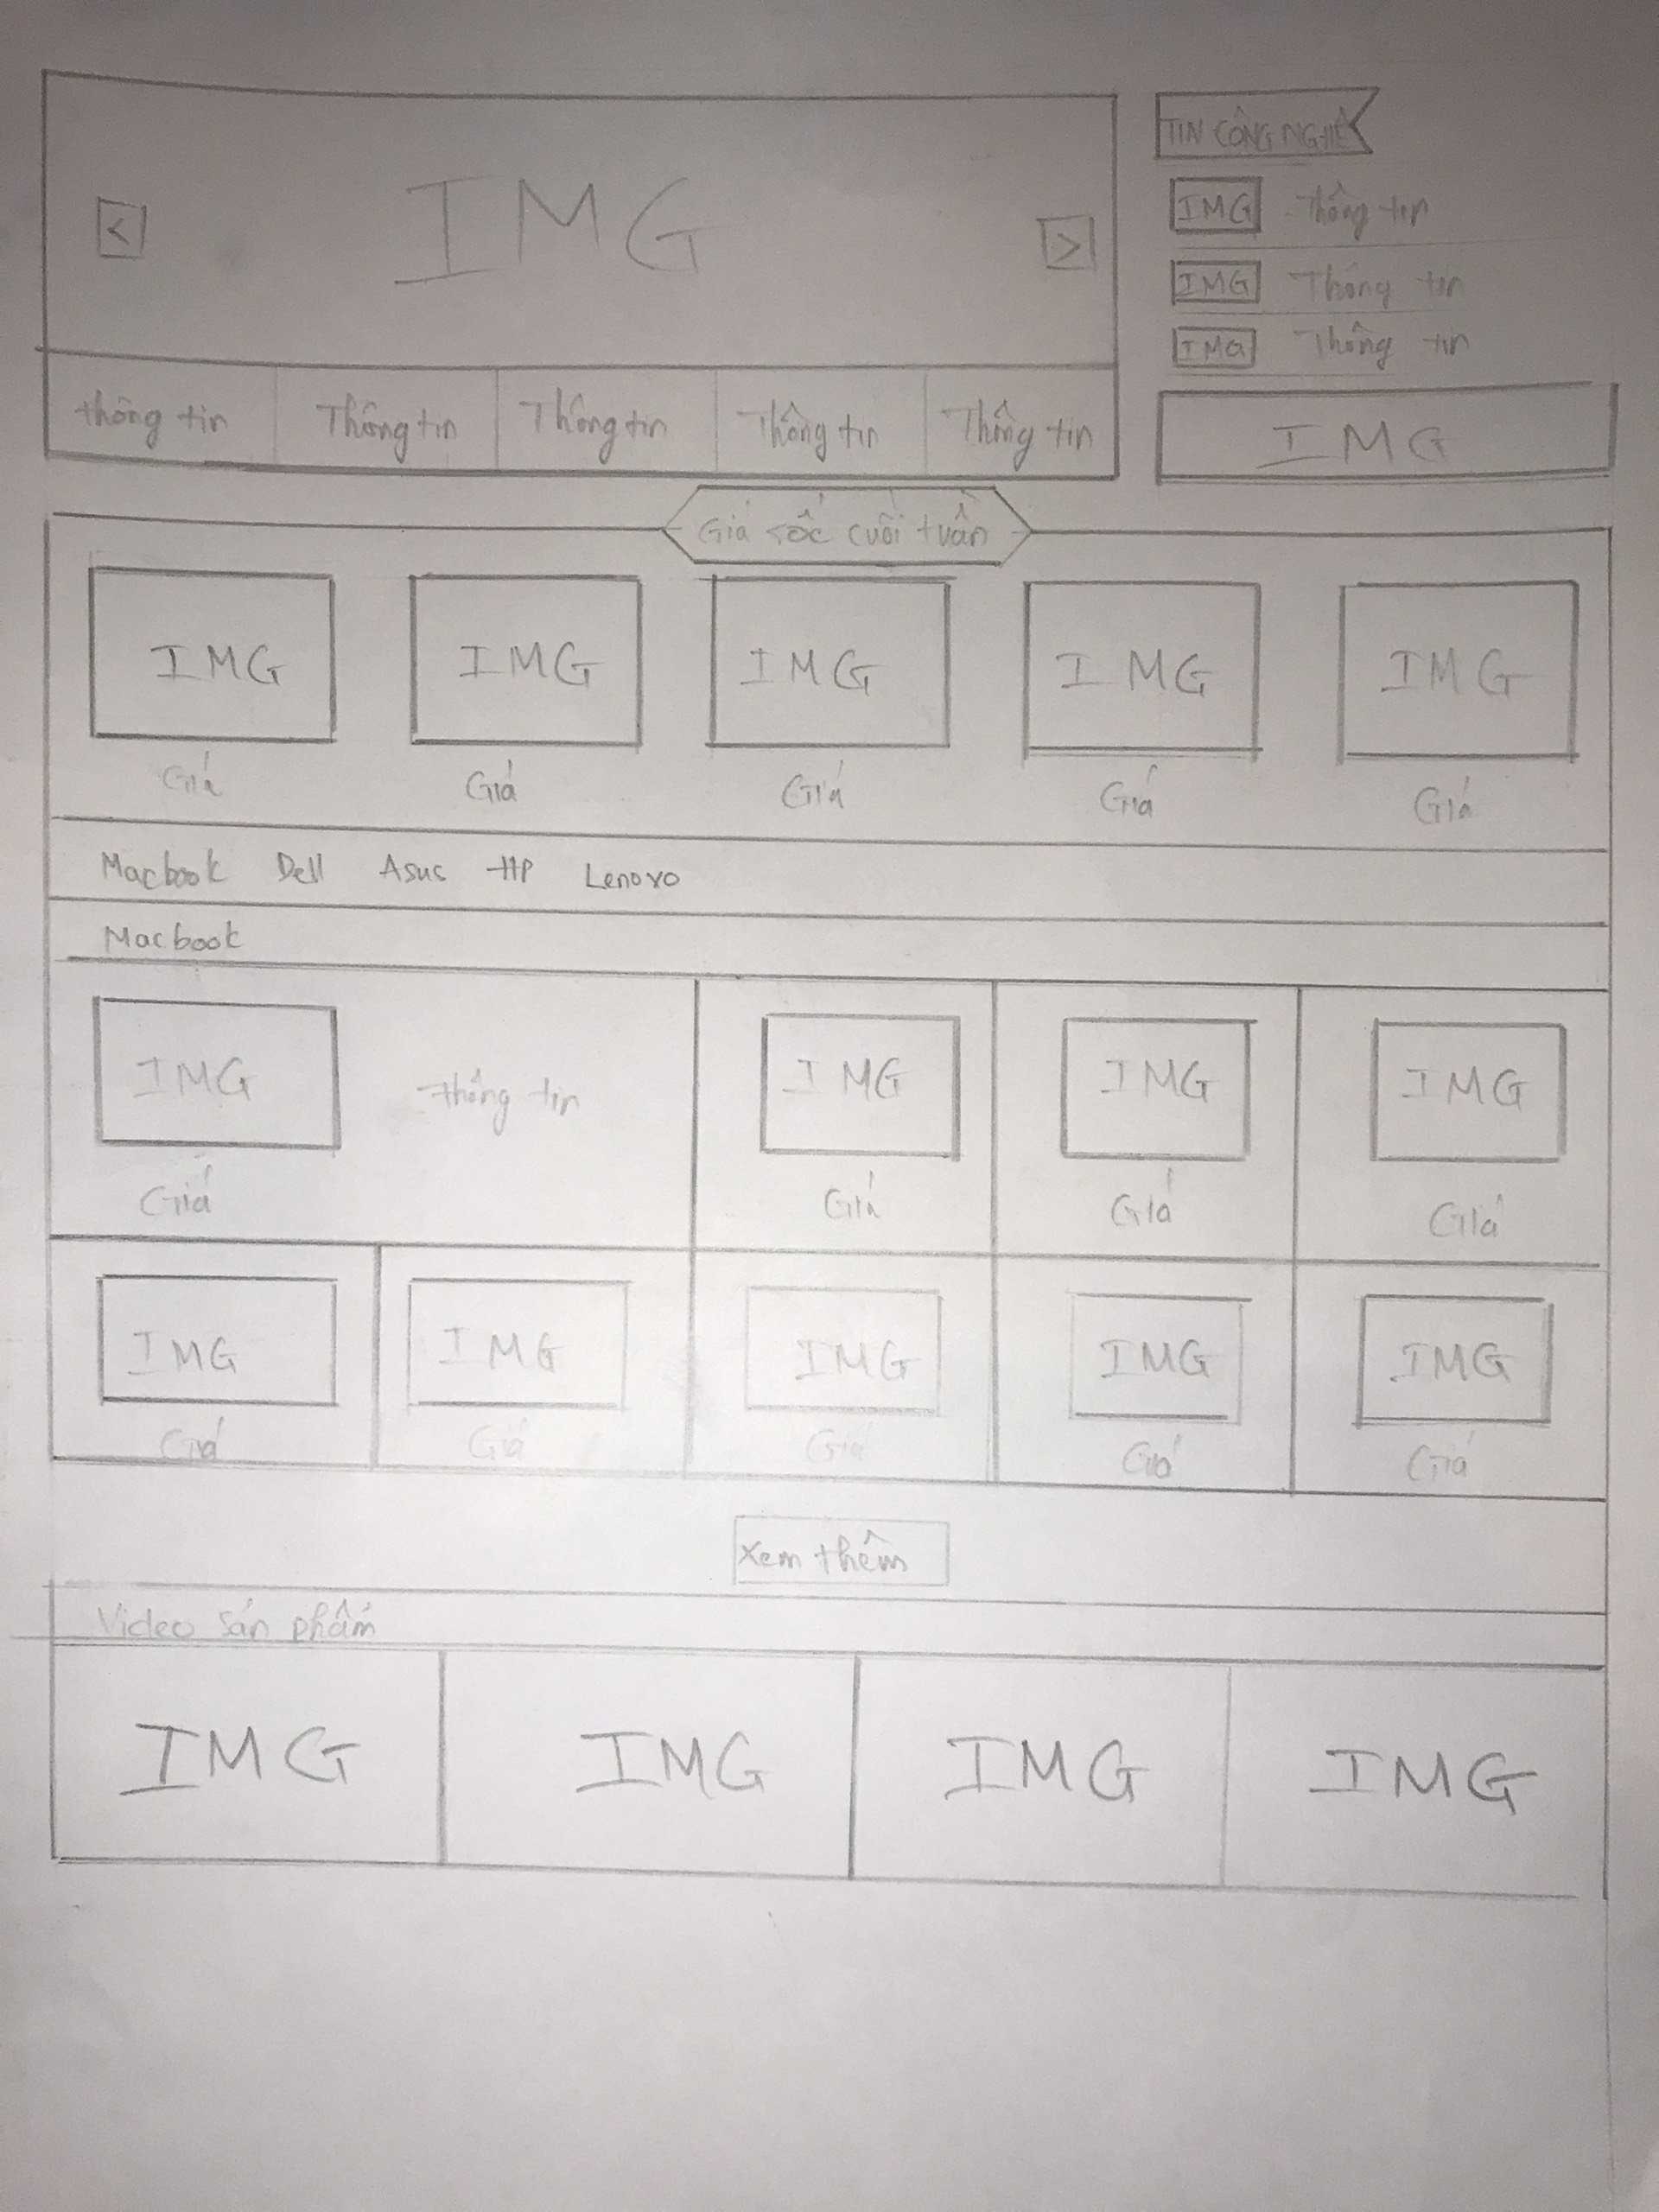 < IMG >
thông tin Thông tin Thông tin Thông tin Thông tin
TIN CÔNG NGHỆ
IMG Thông tin
IMG Thông tin
IMG Thông tin
IMG
Giá sốc cuối tuần
IMG IMG IMG IMG IMG
Giá Giá Giá Giá Giá
Macbook Dell Asus HP Lenovo
Macbook
IMG thông tin IMG IMG IMG
Giá Giá Giá Giá
IMG IMG IMG IMG IMG
Giá Giá Giá Giá Giá
Xem thêm
Video sản phẩm
IMG IMG IMG IMG